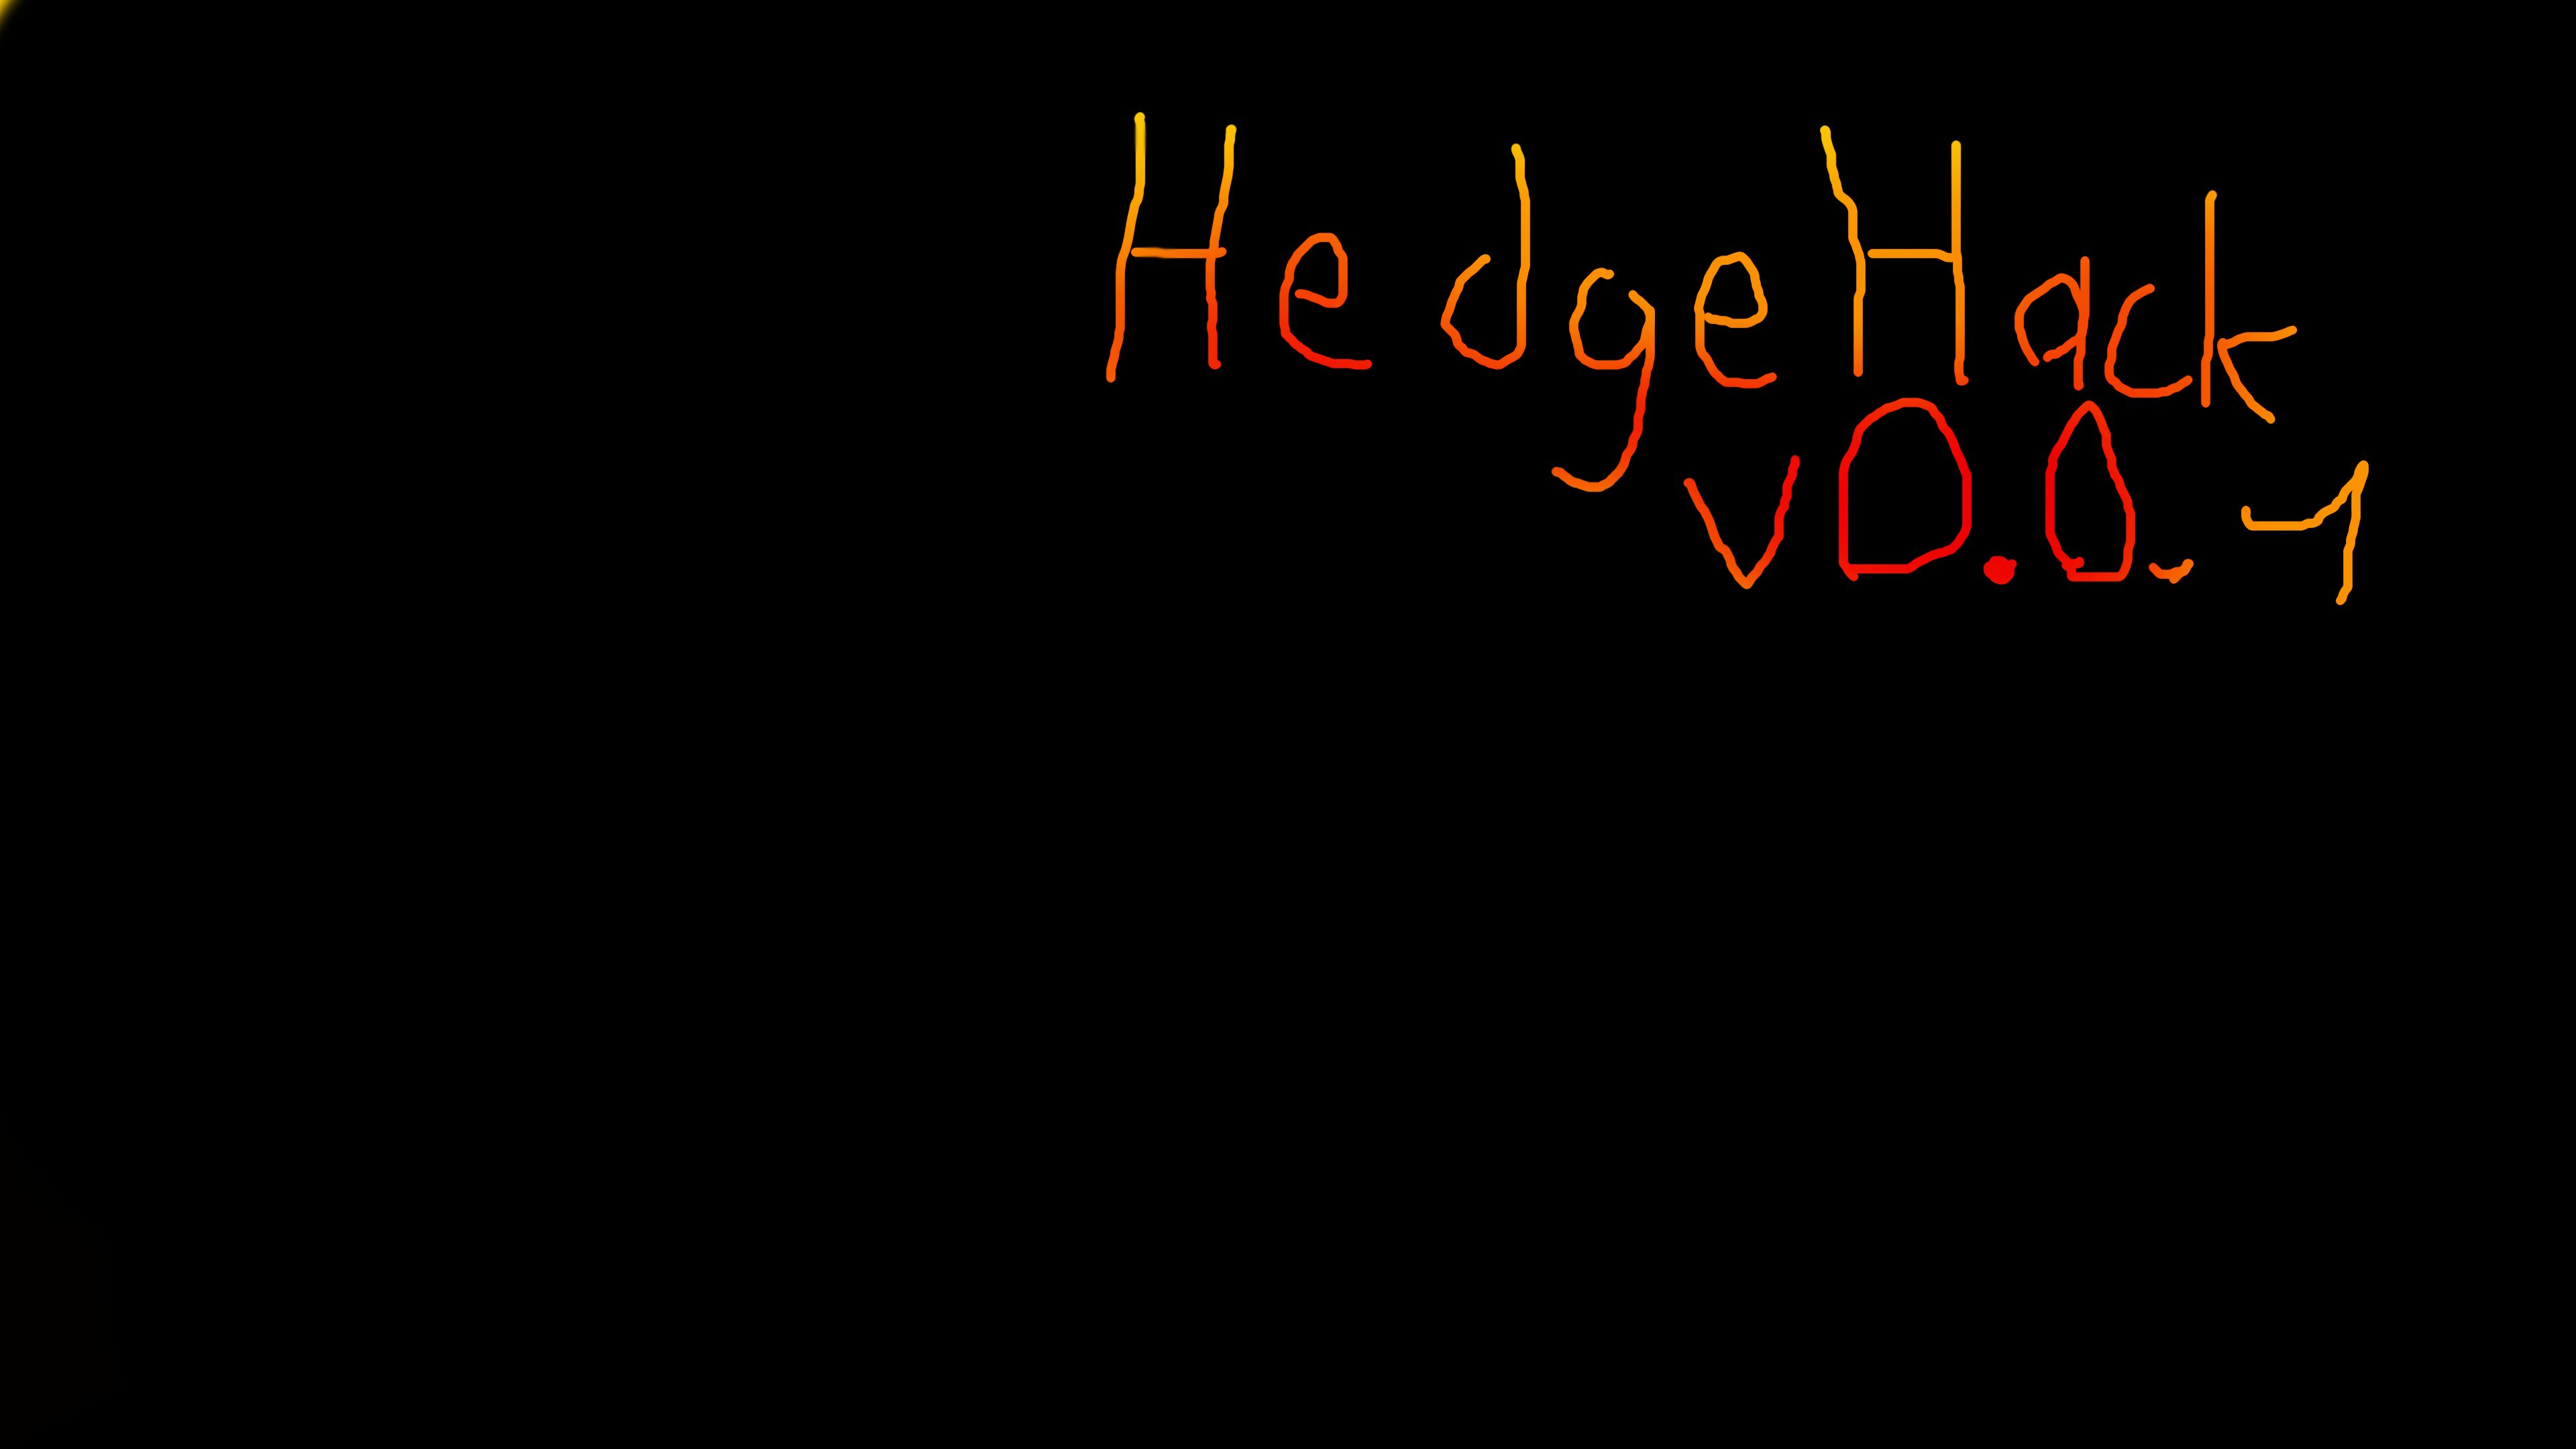 HedgeHack
v0.0.-1